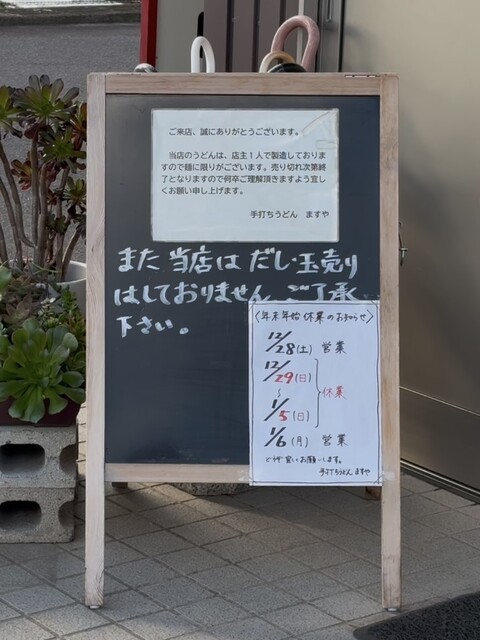 ご来店、誠にありがとうございます。
当店のうどんは、店主1人で製造しておりま
すので麺に限りがございます。売り切れ次第終
了となりますので何卒ご理解頂きますよう宜し
くお願い申し上げます。
手打ちうどん ますや
また当店はだし・玉売り
はしておりません。ご了承
下さい。
〈年末年始休業のお知らせ〉
12/28(土) 営業
12/29(日)
〜
休業
1/5(日)
1/6(月) 営業
どうぞ宜しくお願いします。
手打てうどん ますや